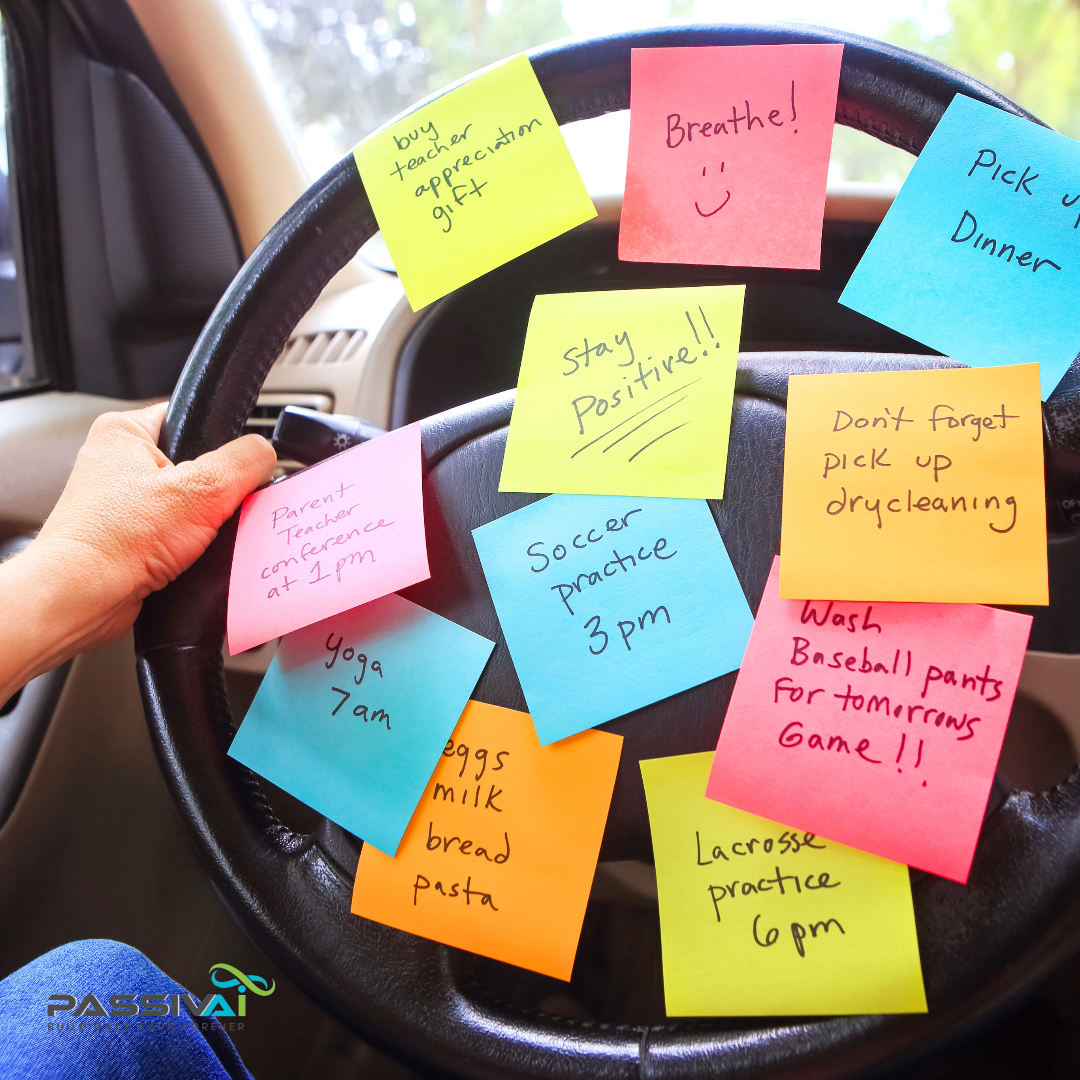 buy
teacher
appreciation
gift
Breathe!
Pick up
Dinner
Stay
Positive!!
Don't forget
pick up
drycleaning
Parent
Teacher
conference
at 1pm
Soccer
practice
3pm
Yoga
7am
Wash
Baseball pants
For tomorrows
Game!!
eggs
milk
bread
pasta
Lacrosse
practice
6pm
PASSIVAI